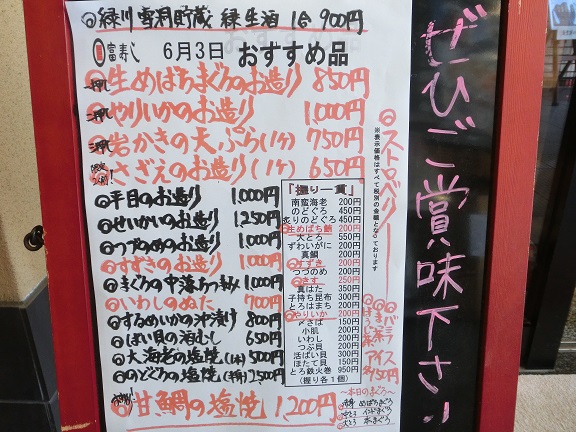 緑川 雪洞貯蔵 緑 生酒 1合 900円
富寿し 6月3日 おすすめ品
一押し 生めばちまぐろのお造り 850円
二押し やりいかのお造り 1,000円
三押し 岩かきの天ぷら(1ヶ) 750円
さざえのお造り(1ヶ) 650円
平目のお造り 1,000円
せいかいのお造り 1,250円
つづのめのお造り 1,000円
すずきのお造り 1,000円
まぐろの中落ちつまみ 1,000円
いわしのぬた 700円
するめいかの沖漬け 800円
ばい貝の酒むし 650円
大海老の塩焼(1本) 500円
のどぐろの塩焼(半身) 2,500円
甘鯛の塩焼 1,200円
『握り一貫』
南蛮海老 200円
のどぐろ 450円
炙りのどぐろ 450円
生めばち鮪 200円
大とろ 550円
ずわいがに 200円
真鯛 200円
すずき 200円
つづのめ 200円
きす 250円
真はた 350円
子持ち昆布 300円
とろはまち 200円
やりいか 200円
〆さば 150円
小肌 200円
いわし 200円
つぶ貝 200円
活ばい貝 300円
ほたて貝 150円
とろ鉄火巻 950円
(握り各1個)
※表示価格はすべて税別の金額となっております
ストロベリー
バニラ
ほうじ茶
アイス
各150円
~本日のまぐろ~
赤身 めばちまぐろ
中とろ インドまぐろ
大とろ 本まぐろ
ぜひご賞味下さい